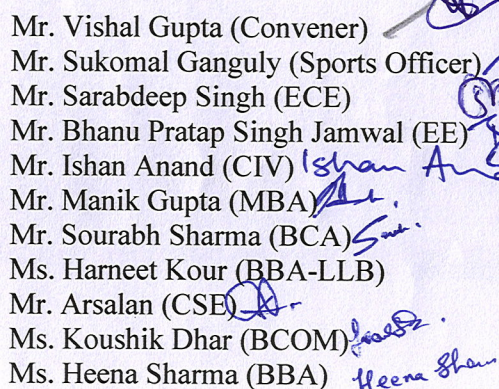 Mr. Vishal Gupta (Convener)
Mr. Sukomal Ganguly (Sports Officer)
Mr. Sarabdeep Singh (ECE)
Mr. Bhanu Pratap Singh Jamwal (EE)
Mr. Ishan Anand (CIV) Ishan
Mr. Manik Gupta (MBA)
Mr. Sourabh Sharma (BCA)
Ms. Harneet Kour (BBA-LLB)
Mr. Arsalan (CSE)
Ms. Koushik Dhar (BCOM)
Ms. Heena Sharma (BBA) Heena